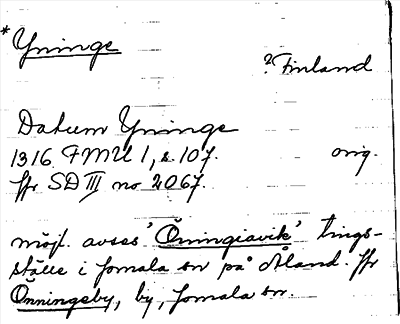 * Yninge
? Finland
Datum Yninge
1316 FMU 1, s. 107. orig.
Jfr SD III no 2067.
möjl. avses 'Öningiavik' tings-
ställe i Jomala sn på Åland. Jfr
Önningeby, by, Jomala sn.